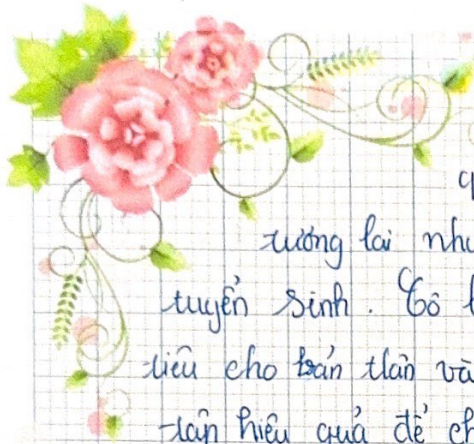 tương lai như
tuyển sinh. Cô
tiêu cho bản thân và
tập hiệu quả để